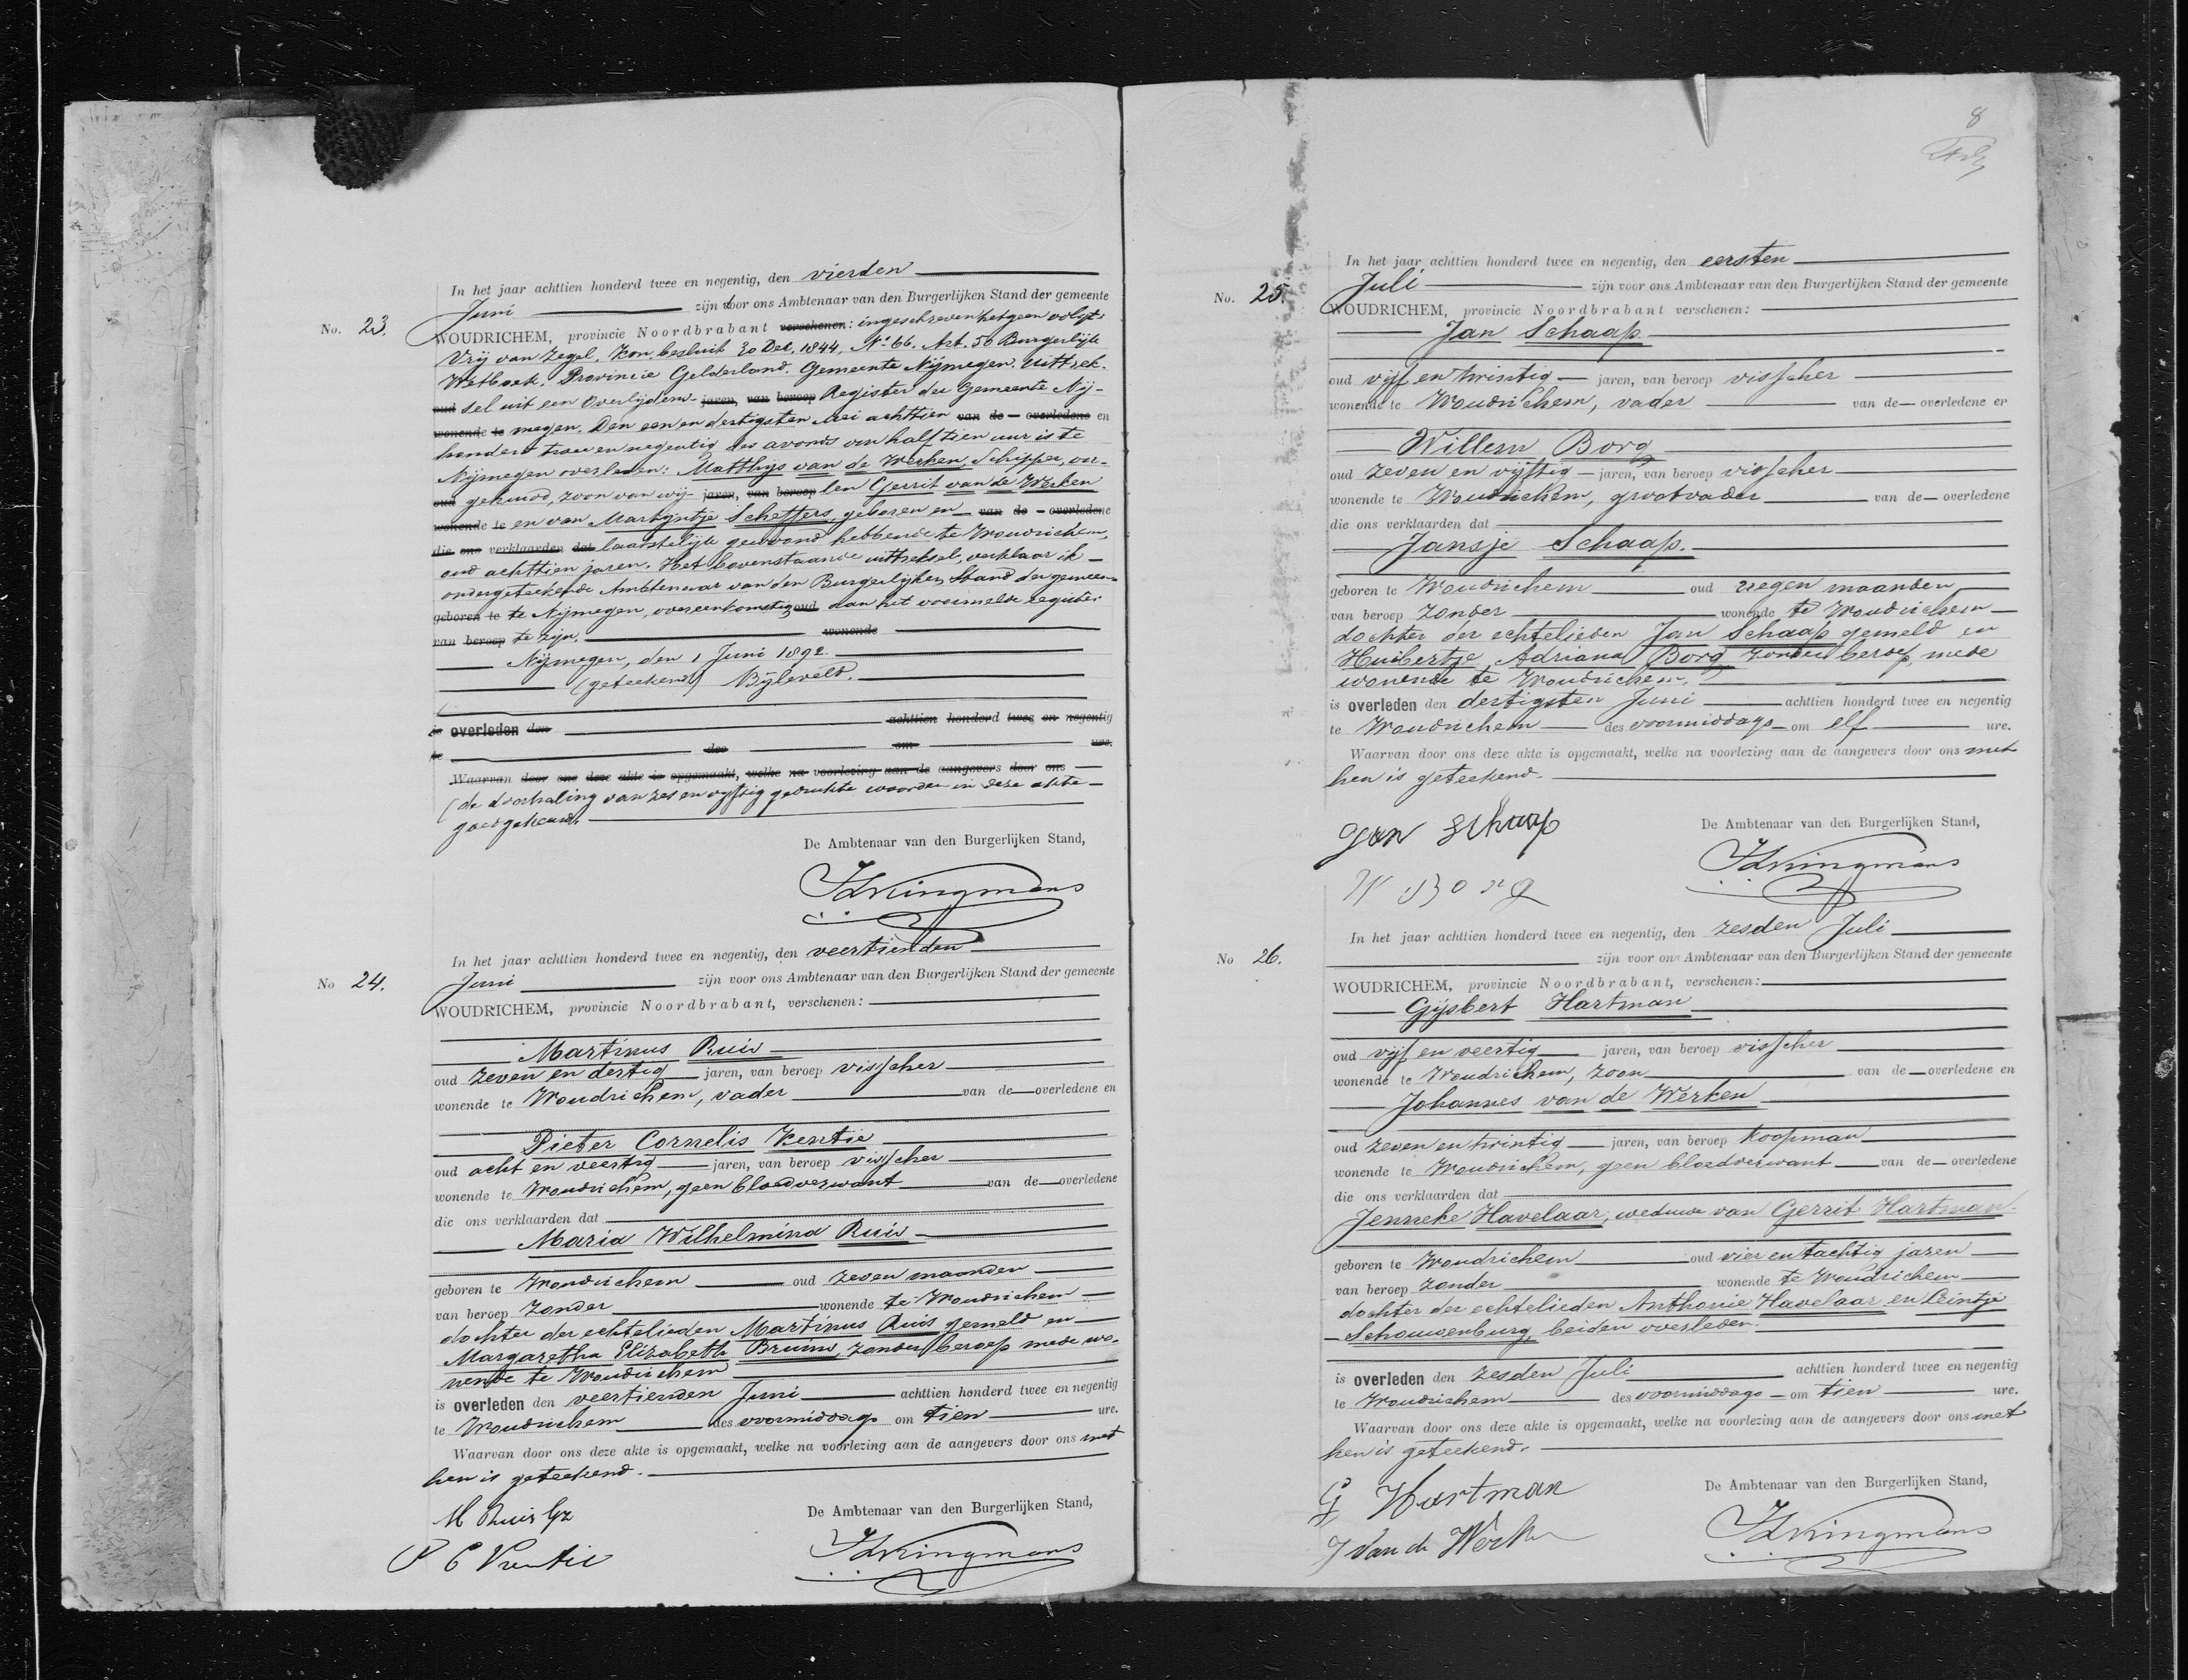 No. 23.
In het jaar achttien honderd twee en negentig, den vierden
Juni zijn voor ons Ambtenaar van den Burgerlijken Stand der gemeente
WOUDRICHEM, provincie Noordbrabant verschenen: ingeschreven hetgeen volgt:
Vrij van zegel, Kon. besluit 30 Dec. 1844, No 66. Art. 50 Burgerlijk
Wetboek. Provincie Gelderland. Gemeente Nijmegen. Uittrek-
oud sel uit een Overlijdens- jaren, van beroep Register der Gemeente Nij-
wonende te megen. Den een en dertigsten Mei achttien van de overledene en
honderd twee en negentig des avonds om half tien uur is te
Nijmegen overleden: Matthijs van de Werken, Schipper, on-
oud gehuwd, zoon van wij- jaren, van beroep len Gerrit van de Werken
wonende te en van Martijntje Scheffers, geboren en van de overledene
die ons verklaarden dat laatstelijk gewoond hebbende te Woudrichem,
oud achttien jaren. Het bovenstaande uittreksel, verklaar ik
ondergeteekende Ambtenaar van den Burgerlijken Stand der gemeen-
geboren te te Nijmegen, overeenkomstig oud aan het voormelde register
van beroep te zijn. wonende
Nijmegen, den 1 Juni 1892.
(geteekend) Bijleveld.
is overleden den achttien honderd twee en negentig
te des om ure.
Waarvan door ons deze akte is opgemaakt, welke na voorlezing aan de aangevers door ons
(de doorhaling van zes en vijftig gedrukte woorden in deze akte
goedgekeurd.
De Ambtenaar van den Burgerlijken Stand,
Kingmans
No 24.
In het jaar achttien honderd twee en negentig, den veertienden
Juni zijn voor ons Ambtenaar van den Burgerlijken Stand der gemeente
WOUDRICHEM, provincie Noordbrabant, verschenen:
Martinus Ruis
oud zeven en dertig jaren, van beroep visscher
wonende te Woudrichem, vader van de overledene en
Pieter Cornelis Kentie
oud acht en veertig jaren, van beroep visscher
wonende te Woudrichem, geen bloedverwant van de overledene
die ons verklaarden dat
Maria Wilhelmina Ruis
geboren te Woudrichem oud zeven maanden
van beroep zonder wonende te Woudrichem
dochter der echtelieden Martinus Ruis gemeld en
Margaretha Elizabeth Bruins, zonder beroep mede wo-
nende te Woudrichem
is overleden den veertienden Juni achttien honderd twee en negentig
te Woudrichem des voormiddags om tien ure.
Waarvan door ons deze akte is opgemaakt, welke na voorlezing aan de aangevers door ons met
hen is geteekend.
M Ruis Gz
De Ambtenaar van den Burgerlijken Stand,
P C Kentie
Kingmans
8
No. 25.
In het jaar achttien honderd twee en negentig, den eersten
Juli zijn voor ons Ambtenaar van den Burgerlijken Stand der gemeente
WOUDRICHEM, provincie Noordbrabant verschenen:
Jan Schaap
oud vijf en twintig jaren, van beroep visscher
wonende te Woudrichem, vader van de overledene en
Willem Borg
oud zeven en vijftig jaren, van beroep visscher
wonende te Woudrichem, grootvader van de overledene
die ons verklaarden dat
Jansje Schaap.
geboren te Woudrichem oud negen maanden
van beroep zonder wonende te Woudrichem
dochter der echtelieden Jan Schaap gemeld en
Huibertje Adriana Borg zonder beroep, mede
wonende te Woudrichem.
is overleden den dertigsten Juni achttien honderd twee en negentig
te Woudrichem des voormiddags om elf ure.
Waarvan door ons deze akte is opgemaakt, welke na voorlezing aan de aangevers door ons met
hen is geteekend.
Jan Schaap
De Ambtenaar van den Burgerlijken Stand,
W Borg
Kingmans
No 26.
In het jaar achttien honderd twee en negentig, den zesden Juli
zijn voor ons Ambtenaar van den Burgerlijken Stand der gemeente
WOUDRICHEM, provincie Noordbrabant, verschenen:
Gijsbert Hartman
oud vijf en veertig jaren, van beroep visscher
wonende te Woudrichem, zoon van de overledene en
Johannes van de Werken
oud zeven en twintig jaren, van beroep koopman
wonende te Woudrichem, geen bloedverwant van de overledene
die ons verklaarden dat
Jenneke Havelaar, weduwe van Gerrit Hartman.
geboren te Woudrichem oud vier en tachtig jaren
van beroep zonder wonende te Woudrichem
dochter der echtelieden Anthonie Havelaar en Leintje
Schouwenburg, beiden overleden.
is overleden den zesden Juli achttien honderd twee en negentig
te Woudrichem des voormiddags om tien ure.
Waarvan door ons deze akte is opgemaakt, welke na voorlezing aan de aangevers door ons met
hen is geteekend.
G Hartman
De Ambtenaar van den Burgerlijken Stand,
J van de Werken
Kingmans